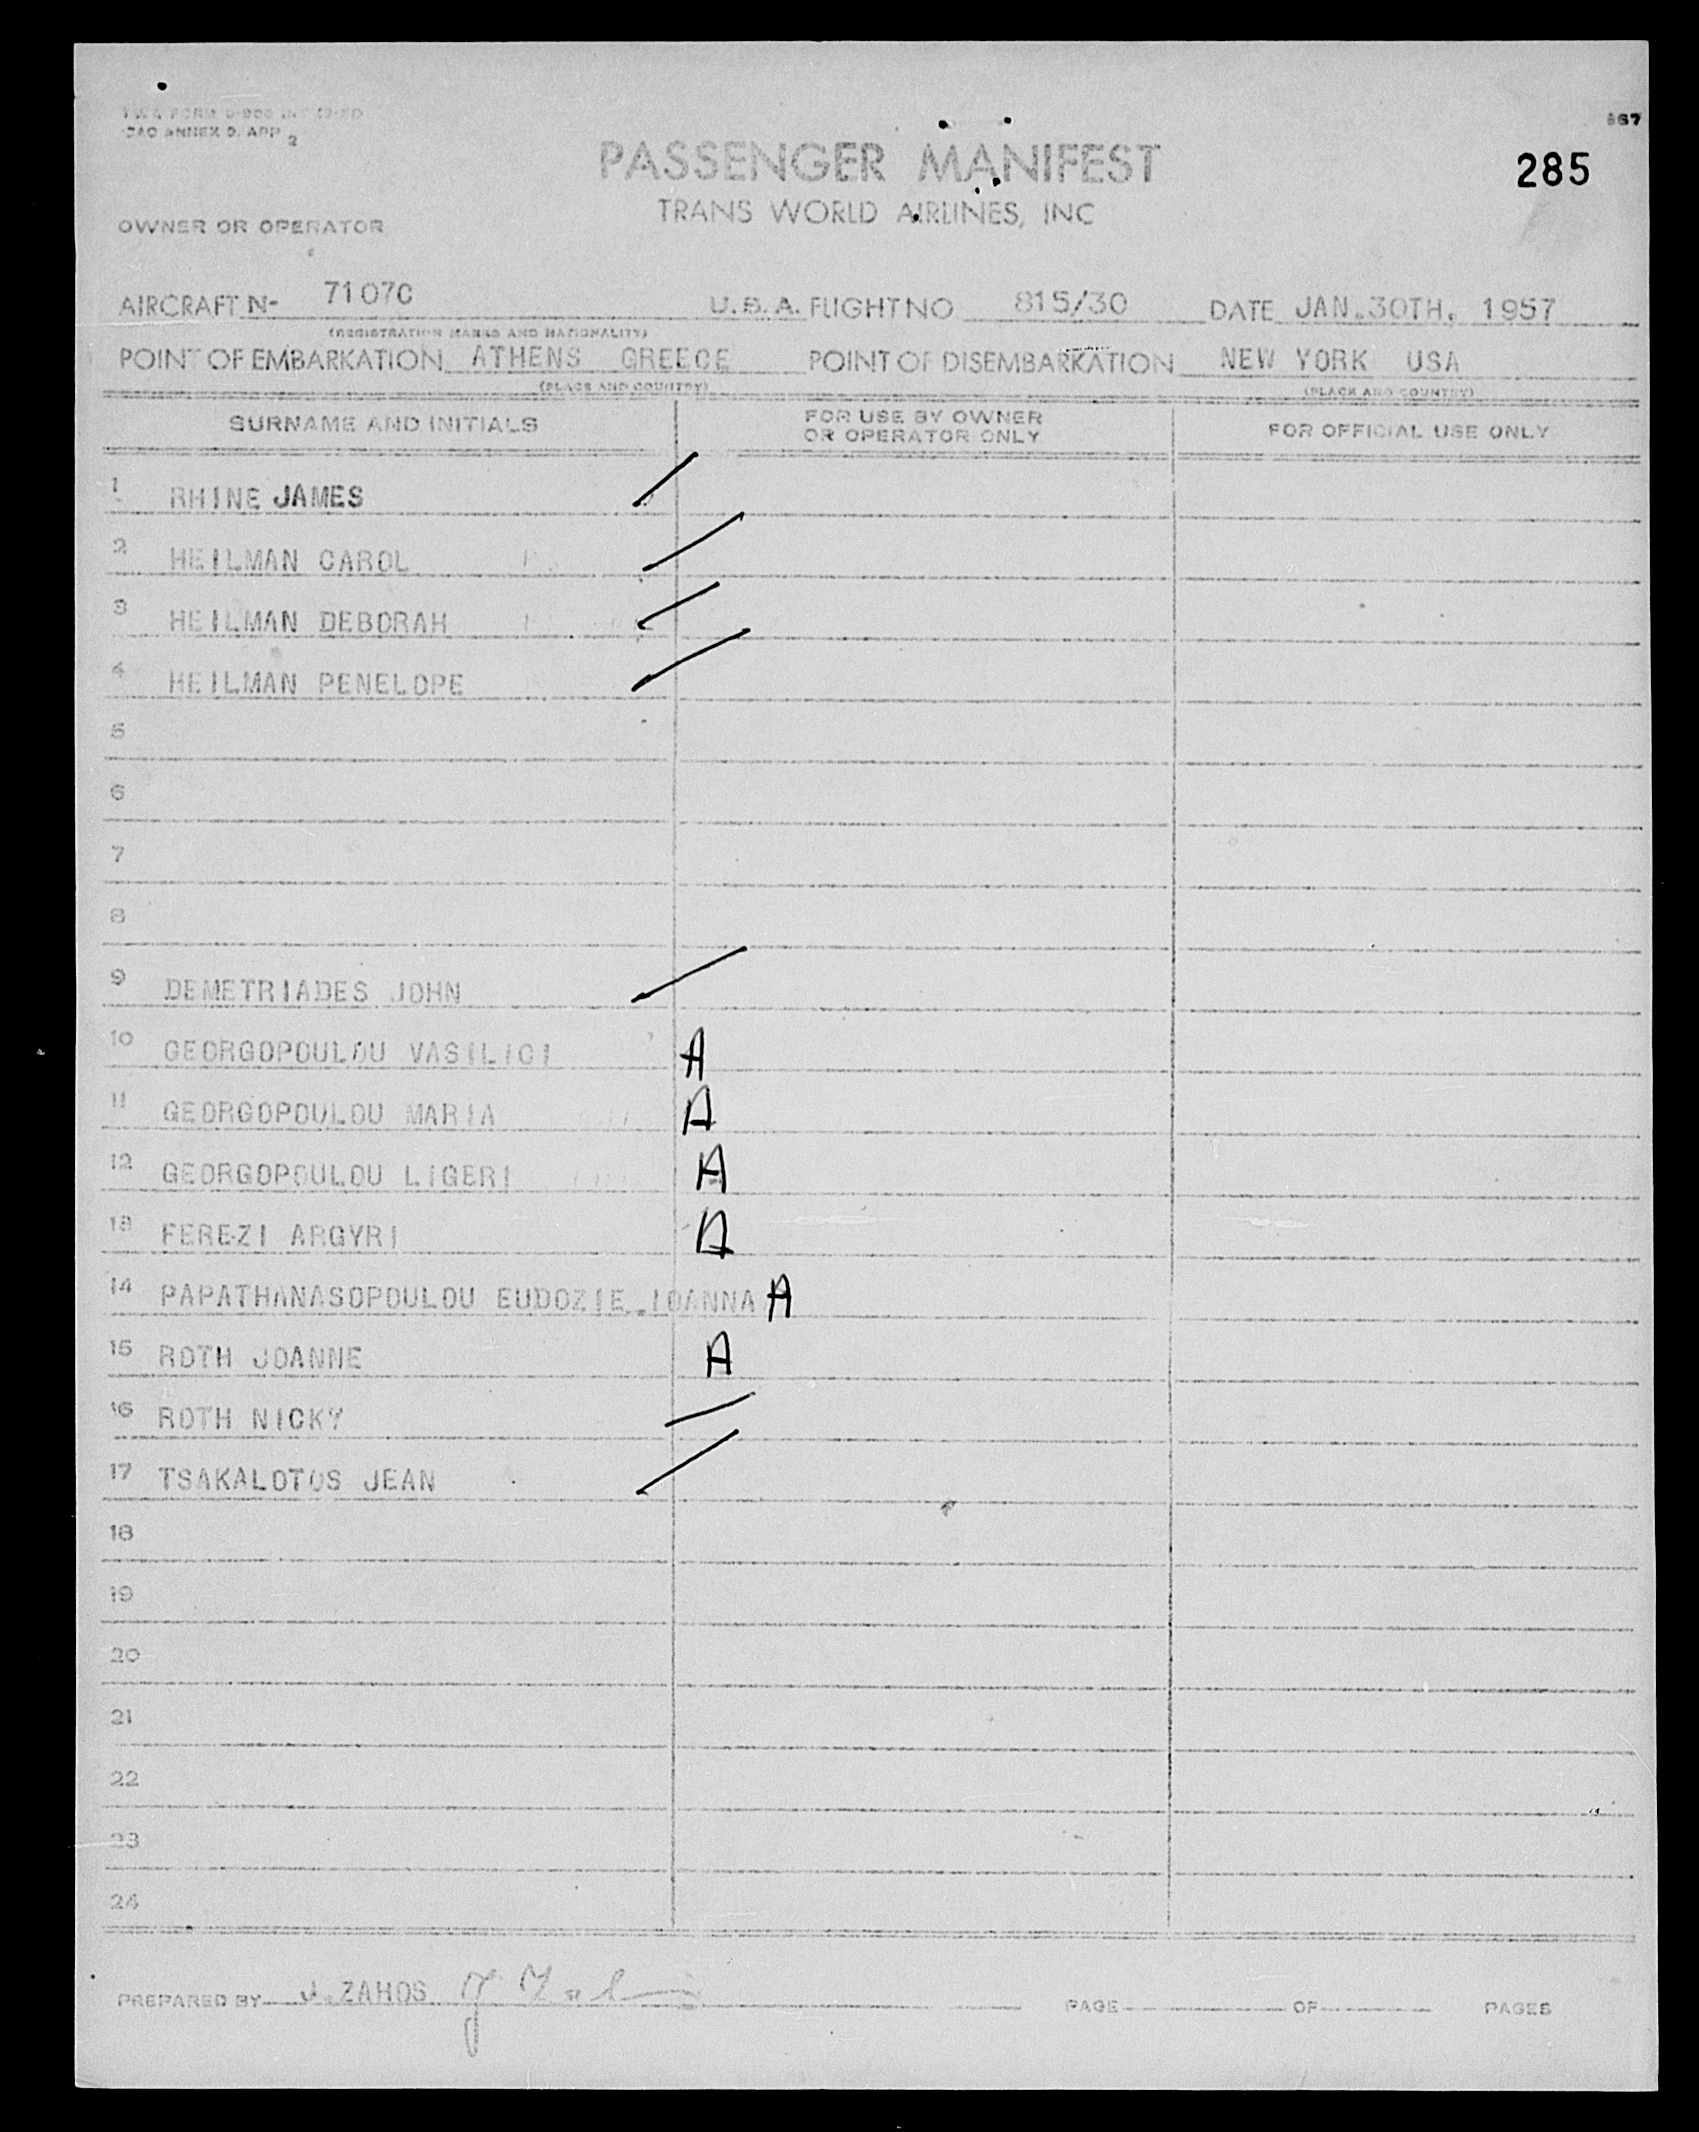 TWA FORM
ICAO ANNEX 9. APP 2
867
PASSENGER MANIFEST
285
TRANS WORLD AIRLINES, INC
OWNER OR OPERATOR
AIRCRAFT N- 7107C U.S.A. FLIGHT NO 815/30 DATE JAN.30TH. 1957
(REGISTRATION MARKS AND NATIONALITY)
POINT OF EMBARKATION ATHENS GREECE POINT OF DISEMBARKATION NEW YORK USA
(PLACE AND COUNTRY) (PLACE AND COUNTRY)
SURNAME AND INITIALS FOR USE BY OWNER OR OPERATOR ONLY FOR OFFICIAL USE ONLY
1 RHINE JAMES
2 HEILMAN CAROL
3 HEILMAN DEBORAH
4 HEILMAN PENELOPE
5
6
7
8
9 DEMETRIADES JOHN
10 GEORGOPOULOU VASILICI A
11 GEORGOPOULOU MARIA A
12 GEORGOPOULOU LIGERI A
13 FEREZI ARGYRI A
14 PAPATHANASOPOULOU EUDOZIE.IOANNA A
15 ROTH JOANNE A
16 ROTH NICKY
17 TSAKALOTOS JEAN
18
19
20
21
22
23
24
PREPARED BY J.ZAHOS PAGE OF PAGES